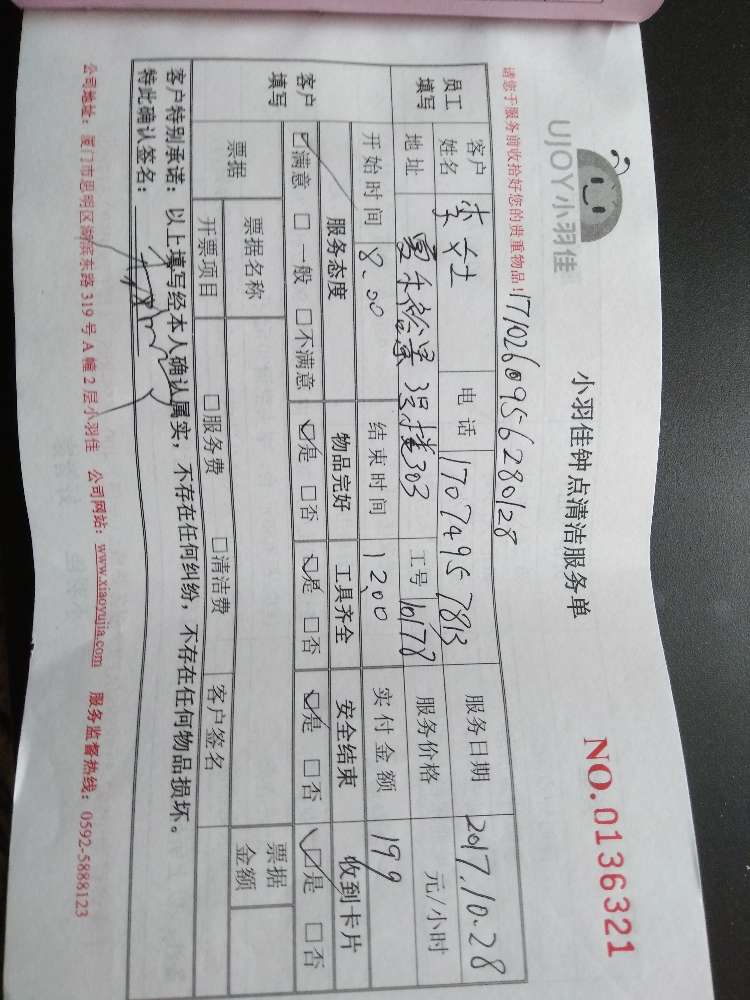 UJOY小羽佳
小羽佳钟点清洁服务单
NO.0136321
请您于服务前收拾好您的贵重物品！1710260956280128
员工填写 客户姓名 女士 电话 17074957813 服务日期 2017.10.28
地址 景 3号楼303 工号 10178 服务价格 元/小时
开始时间 8.00 结束时间 1200 实付金额 199
客户填写 服务态度 物品完好 工具齐全 安全结束 收到卡片
☑满意 □一般 □不满意 ☑是 □否 ☑是 □否 ☑是 □否 ☑是 □否
票据 票据名称 票据金额
开票项目 □服务费 □清洁费 客户签名
客户特别承诺：以上填写经本人确认属实，不存在任何纠纷，不存在任何物品损坏。
特此确认签名：
公司地址：厦门市思明区湖滨东路 319 号 A 幢 2 层小羽佳 公司网站：www.xiaoyujia.com 服务监督热线：0592-5888123